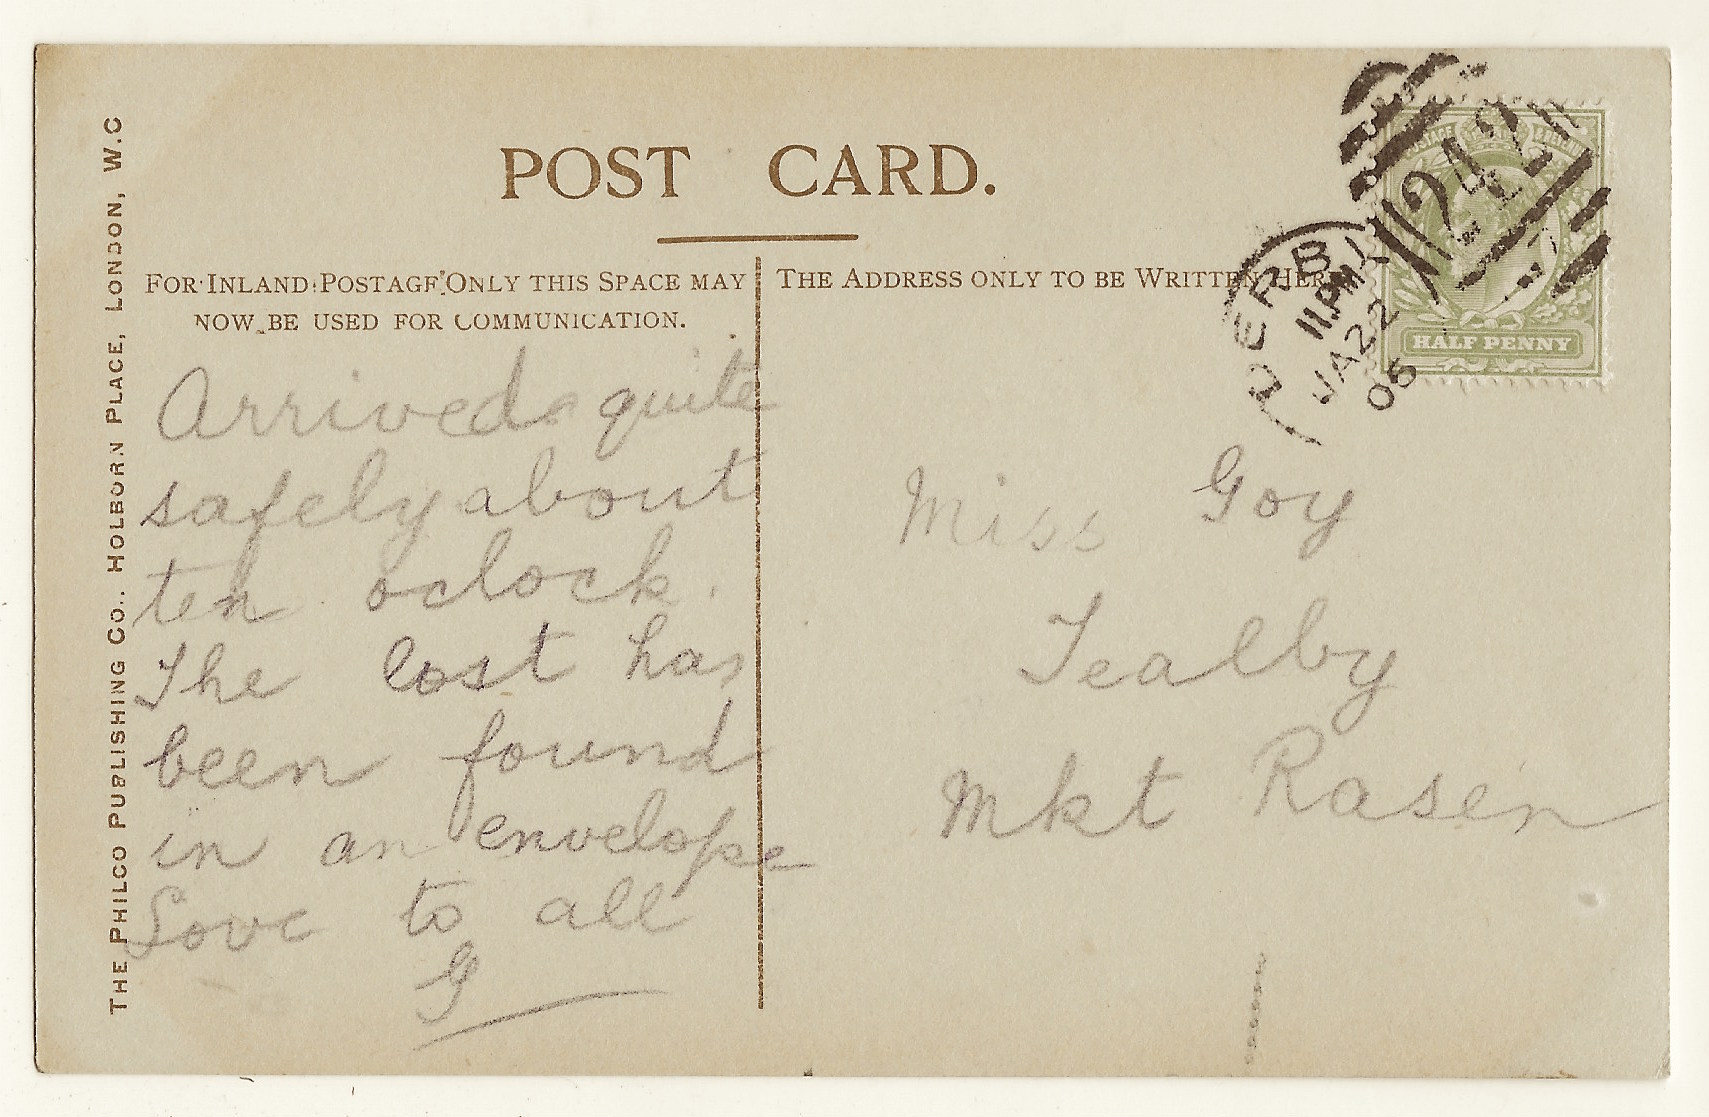 POST CARD.
FOR INLAND POSTAGE ONLY THIS SPACE MAY
NOW BE USED FOR COMMUNICATION.
THE ADDRESS ONLY TO BE WRITTEN HERE
Arrived quite
safely about
ten oclock.
The lost has
been found
in an envelope
Love to all
G
Miss Goy
Tealby
Mkt Rasen
THE PHILCO PUBLISHING CO., HOLBORN PLACE, LONDON, W.C
DERBY
11.PM
JA 22
06
242
POSTAGE
HALF PENNY